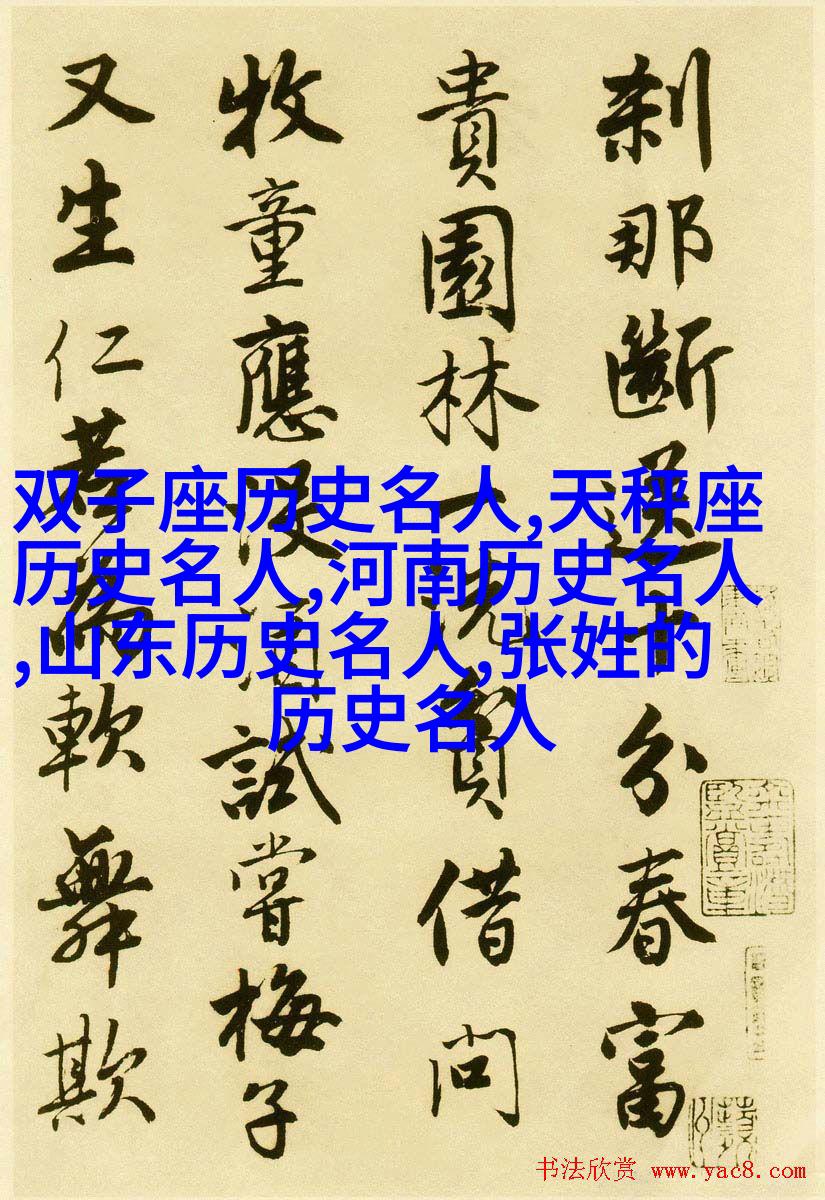 刹那斷送十分春富
貴園林一洗貧借問
牧童應没酒試嘗梅子
又生仁若為軟舞欺
双子座历史名人,天秤座
历史名人,河南历史名人
,山东历史名人,张姓的
历史名人
书法欣赏 www.yac8.com